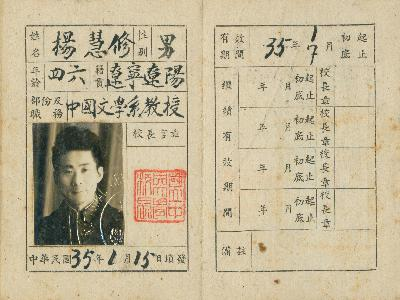 姓名 楊慧修 性別 男
年齡 四六 籍貫 遼寧遼陽
部份及職務 中國文學系教授
校長
中華民國35年1月15日填發
有效期間 35年 1 7 月 初底 起止
繼續有效期間
年 月 初底 起止 校長章
年 月 初底 起止 校長章
年 月 初底 起止 校長章
年 月 初底 起止 校長章
備註